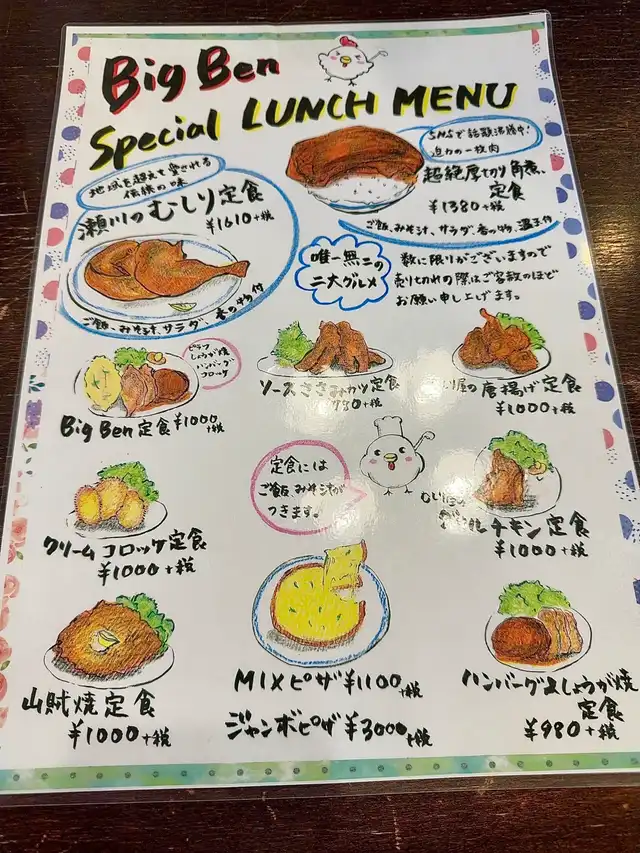 Big Ben
Special LUNCH MENU
地域を超えて愛される
伝統の味
瀬川のむしり定食
¥1610+税
ご飯、みそ汁、サラダ、香の物付
SNSで話題沸騰中!
迫力の一枚肉
超絶厚切り角煮
定食
¥1380+税
ご飯、みそ汁、サラダ、香の物、温玉付
唯一無二の
二大グルメ
数に限りがございますので
売り切れの際はご容赦のほど
お願い申し上げます。
しょうが焼
ハンバーグ
コロッケ
Big Ben定食¥1000
+税
ソースささみカツ定食
780+税
屋の唐揚げ定食
¥1000+税
クリームコロッケ定食
¥1000+税
定食には
ご飯、みそ汁が
つきます。
チキン定食
¥1000+税
山賊焼定食
¥1000+税
MIXピザ¥1100+税
ジャンボピザ¥3000+税
ハンバーグ&しょうが焼
定食
¥980+税